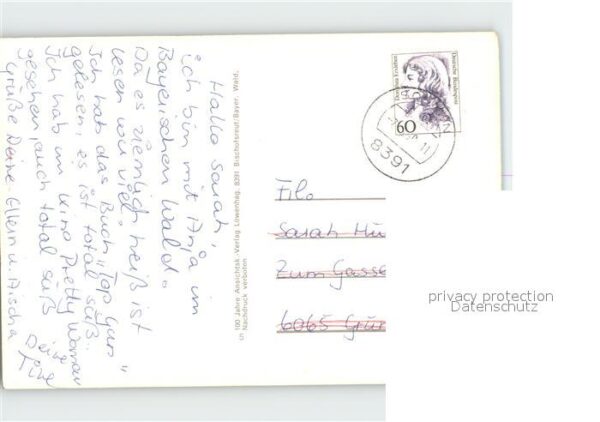 Hallo Sarah,
ich bin mit Anja im
Bayerischen Wald.
Da es ziemlich heiß ist
lesen wir viel.
Ich hab das Buch "Top Gun"
gelesen, es ist total süß.
Ich hab im Kino Pretty Woman
gesehen, auch total süß
Grüße Deine Eltern u. Aischa
Deine
100 Jahre Ansichtsk.-Verlag Löwenhag, 8391 Bischofsreut/Bayer. Wald,
Nachdruck verboten
Dorothea Erxleben
Deutsche Bundespost
60
8391
Filo
Sarah Hu
Zum Gasse
6065 Grü
privacy protection
Datenschutz